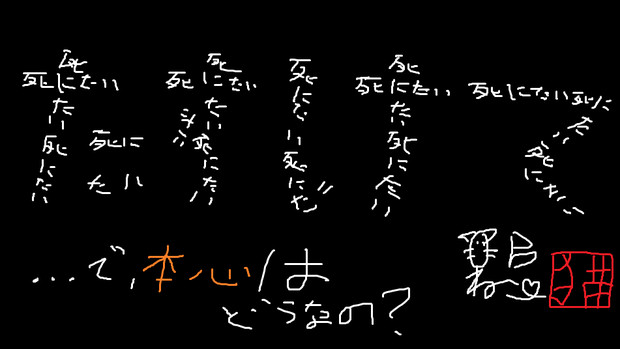 死にたい死にたい
死にたい
死に
たい
死にたい死にたい
死にたい
死にたい死にたい
死にたい死にたい
死にたい
死にたい死にたい死にたい
...で,本心は
どうなの?